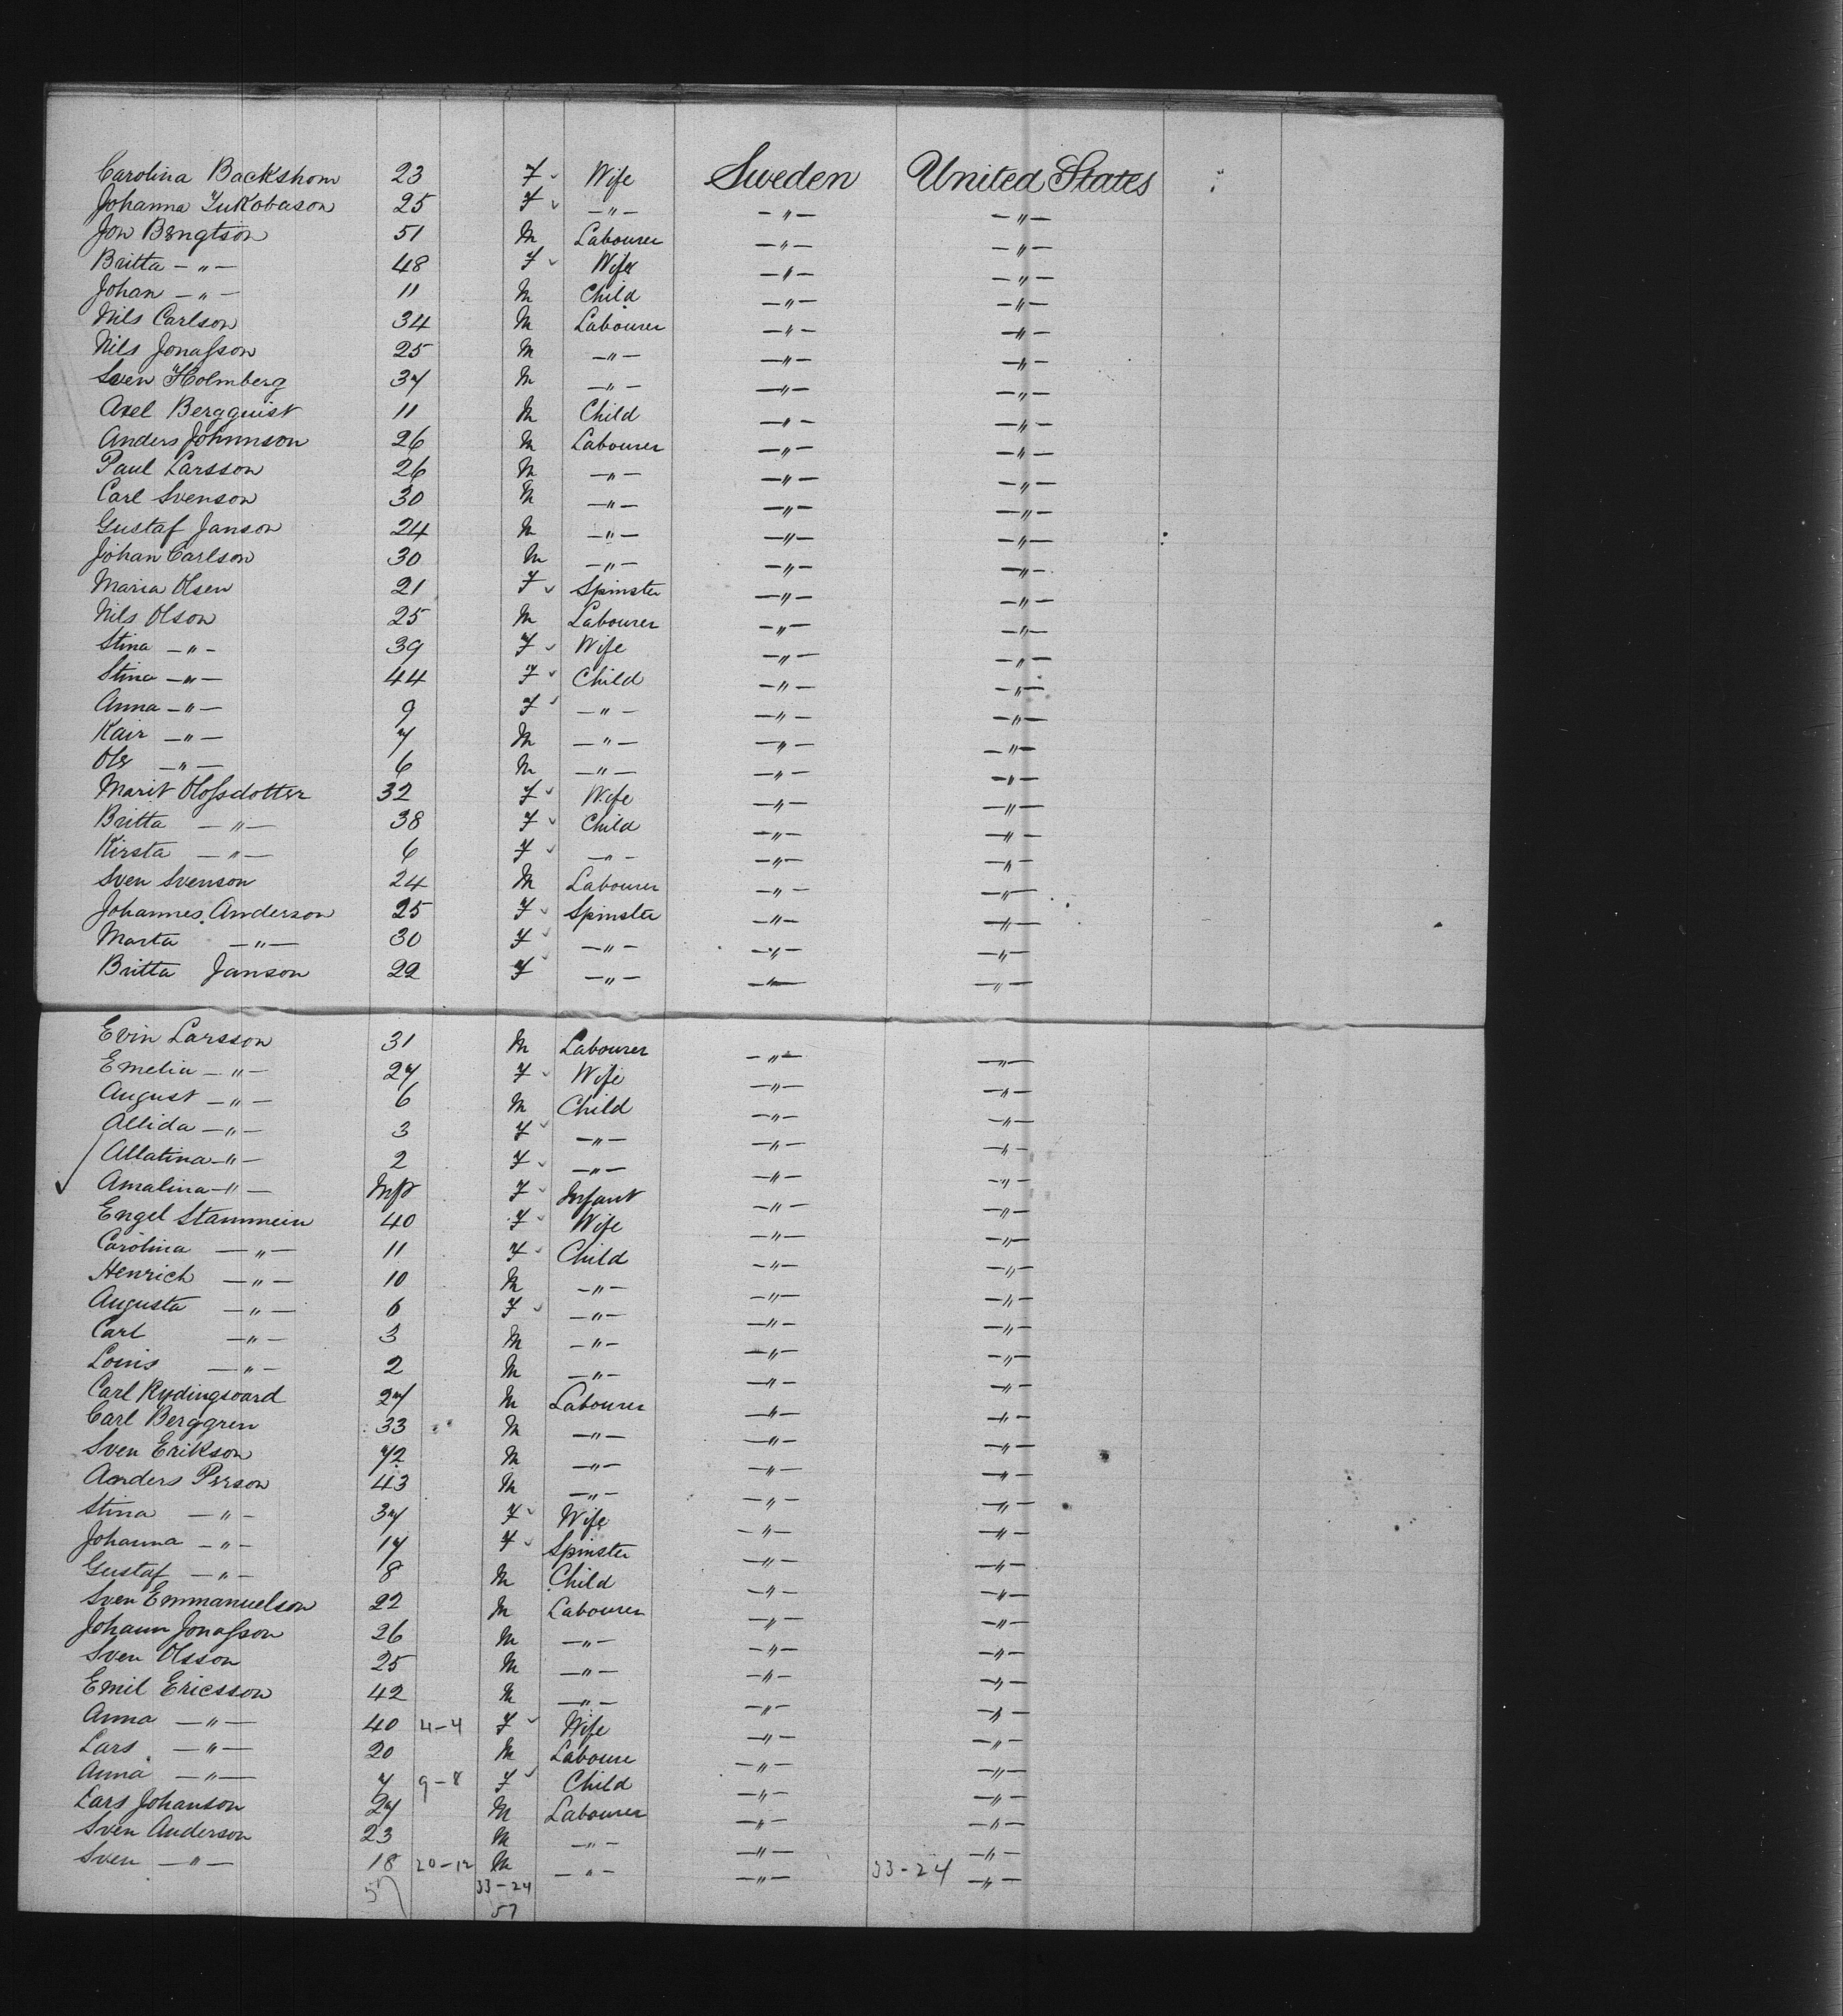 Carolina Backshom 23 F Wife Sweden United States
Johanna Jukobason 25 F —"— —"— —"—
Jon Bengtson 51 M Labourer —"— —"—
Britta —"— 48 F Wife —"— —"—
Johan —"— 11 M Child —"— —"—
Nils Carlson 34 M Labourer —"— —"—
Nils Jonasson 25 M —"— —"— —"—
Sven Holmberg 37 M —"— —"— —"—
Axel Bergquist 11 M Child —"— —"—
Anders Johnnson 26 M Labourer —"— —"—
Paul Larsson 26 M —"— —"— —"—
Carl Svenson 30 M —"— —"— —"—
Gustaf Janson 24 M —"— —"— —"—
Johan Carlson 30 M —"— —"— —"—
Maria Olsen 21 F Spinster —"— —"—
Nils Olson 25 M Labourer —"— —"—
Stina —"— 39 F Wife —"— —"—
Stina —"— 44 F Child —"— —"—
Anna —"— 9 F —"— —"— —"—
Kair —"— 7 M —"— —"— —"—
Ole —"— 6 M —"— —"— —"—
Marit Olossdotter 32 F Wife —"— —"—
Britta —"— 38 F Child —"— —"—
Kirsta —"— 6 F —"— —"— —"—
Sven Svenson 24 M Labourer —"— —"—
Johannes Anderson 25 F Spinster —"— —"—
Marta —"— 30 F —"— —"— —"—
Britta Janson 22 F —"— —"— —"—
Evin Larsson 31 M Labourer —"— —"—
Emelia —"— 27 F Wife —"— —"—
August —"— 6 M Child —"— —"—
Allida —"— 3 F —"— —"— —"—
Allatina —"— 2 F —"— —"— —"—
Amalina —"— F Infant —"— —"—
Engel Stammein 40 F Wife —"— —"—
Carolina —"— 11 F Child —"— —"—
Henrich —"— 10 M —"— —"— —"—
Augusta —"— 6 F —"— —"— —"—
Carl —"— 3 M —"— —"— —"—
Louis —"— 2 M —"— —"— —"—
Carl Rydingsvard 27 M Labourer —"— —"—
Carl Berggren 33 M —"— —"— —"—
Sven Erikson 72 M —"— —"— —"—
Anders Person 43 M —"— —"— —"—
Stina —"— 37 F Wife —"— —"—
Johanna —"— 17 F Spinster —"— —"—
Gustaf —"— 8 M Child —"— —"—
Sven Emmanuelson 22 M Labourer —"— —"—
Johann Jonasson 26 M —"— —"— —"—
Sven Olsson 25 M —"— —"— —"—
Emil Ericsson 42 M —"— —"— —"—
Anna —"— 40 4-4 F Wife —"— —"—
Lars —"— 20 M Laboure —"— —"—
Anna —"— 7 9-8 F Child —"— —"—
Lars Johanson 27 M Labourer —"— —"—
Sven Anderson 23 M —"— —"— —"—
Sven —"— 18 20-12 M —"— —"— 33-24 —"—
57 33-24
57